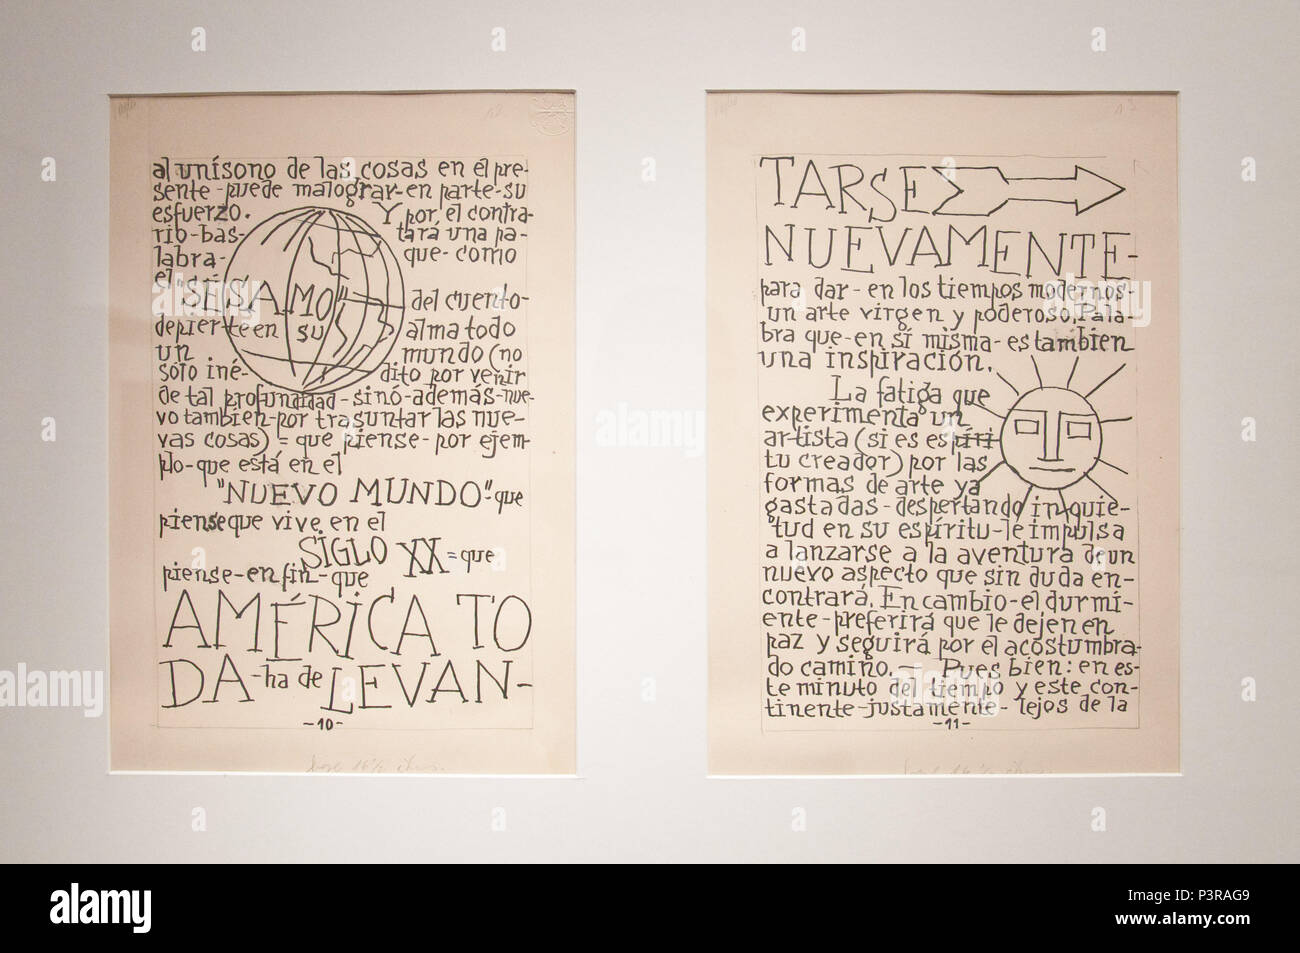 al unísono de las cosas en el pre-
sente-puede malograr-en parte-su
esfuerzo. Y por el contra-
rio-bas- tará una pa-
labra- que-como
el "SÉSAMO" del cuento-
depierte en su alma todo
un mundo (no
sólo iné- dito por venir
de tal profundidad-sinó-además-nue-
vo tambien-por trasuntar las nue-
vas cosas)=que piense-por ejem-
plo-que está en el
"NUEVO MUNDO"-que
piense que vive en el
SIGLO XX=que
piense-en fin-que
AMÉRICA TO
DA-ha de LEVAN-
-10-
TARSE
NUEVAMENTE-
para dar-en los tiempos modernos-
un arte virgen y poderoso. Pala-
bra que-en sí misma-es tambien
una inspiración.
La fatiga que
experimenta un
artista (si es espíri
tu creador) por las
formas de arte ya
gastadas-despertando inquie-
tud en su espíritu-le impulsa
a lanzarse a la aventura de un
nuevo aspecto que sin duda en-
contrará. En cambio-el durmi-
ente-preferirá que le dejen en
paz y seguirá por el acostumbra-
do camino.— Pues bien: en es-
te minuto del tiempo y este con-
tinente-justamente-lejos de la
-11-
alamy
alamy stock photo
P3RAG9
www.alamy.com